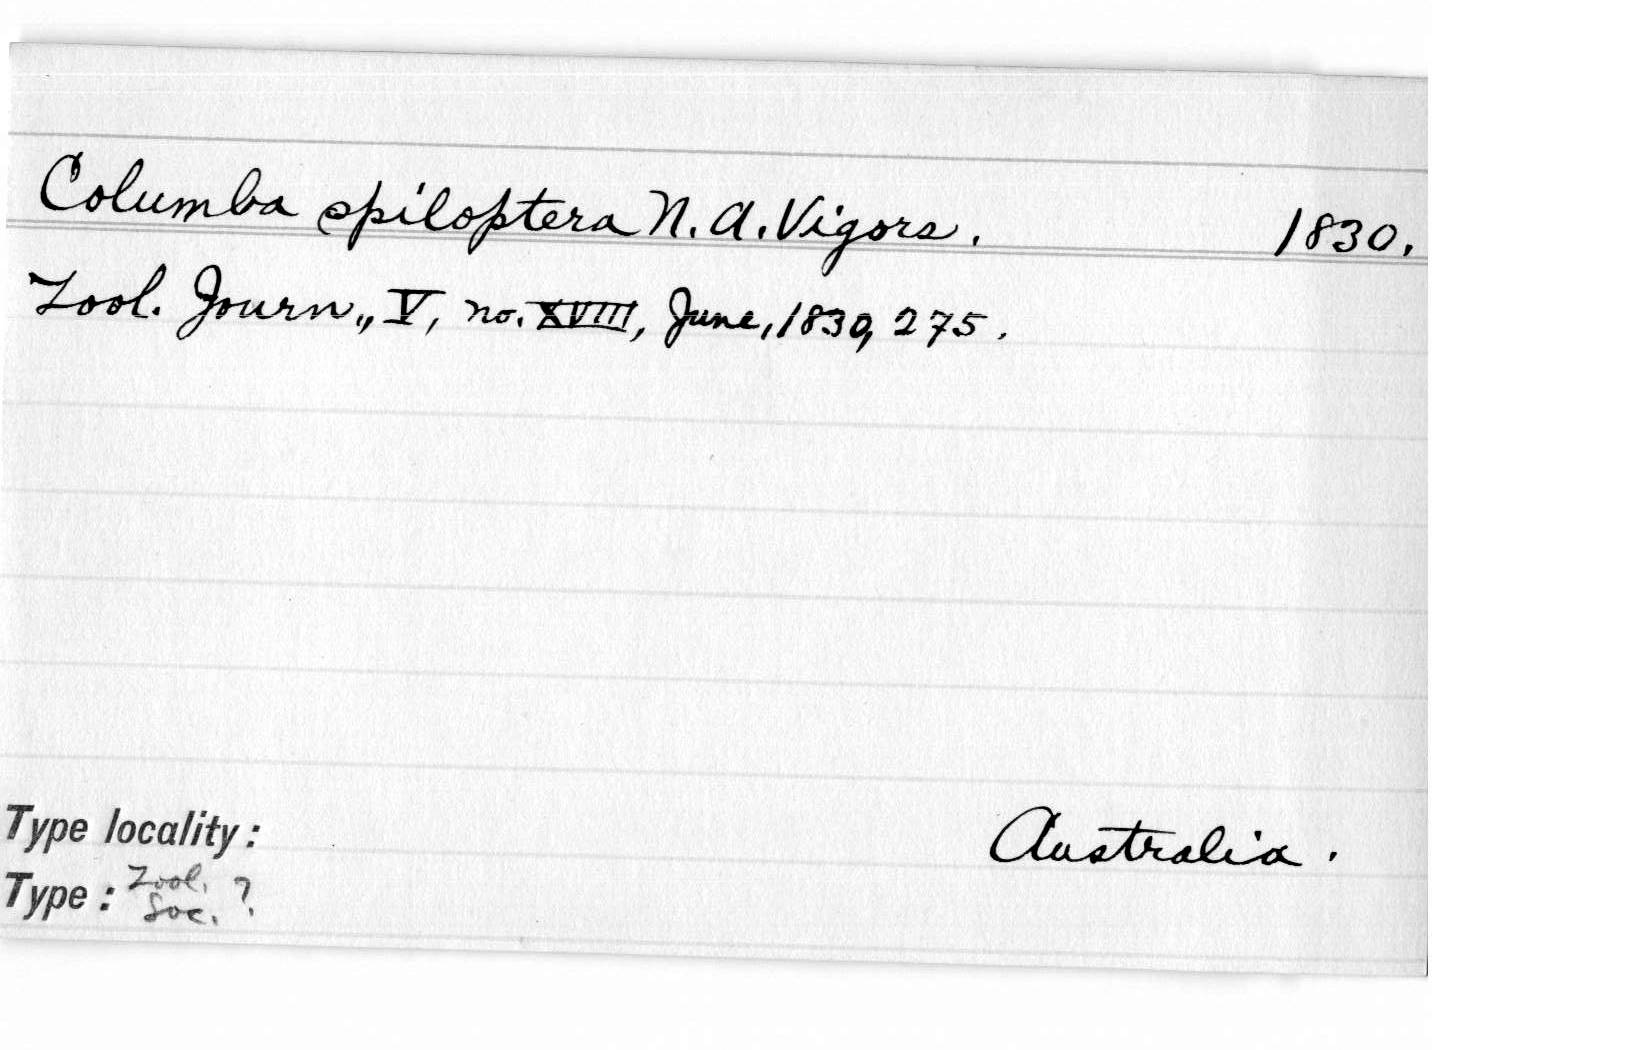 Columba spiloptera N. A. Vigors. 1830.
Zool. Journ., V, no. XVIII, June, 1830, 275.
Type locality: Australia.
Type: Zool. Soc. ?